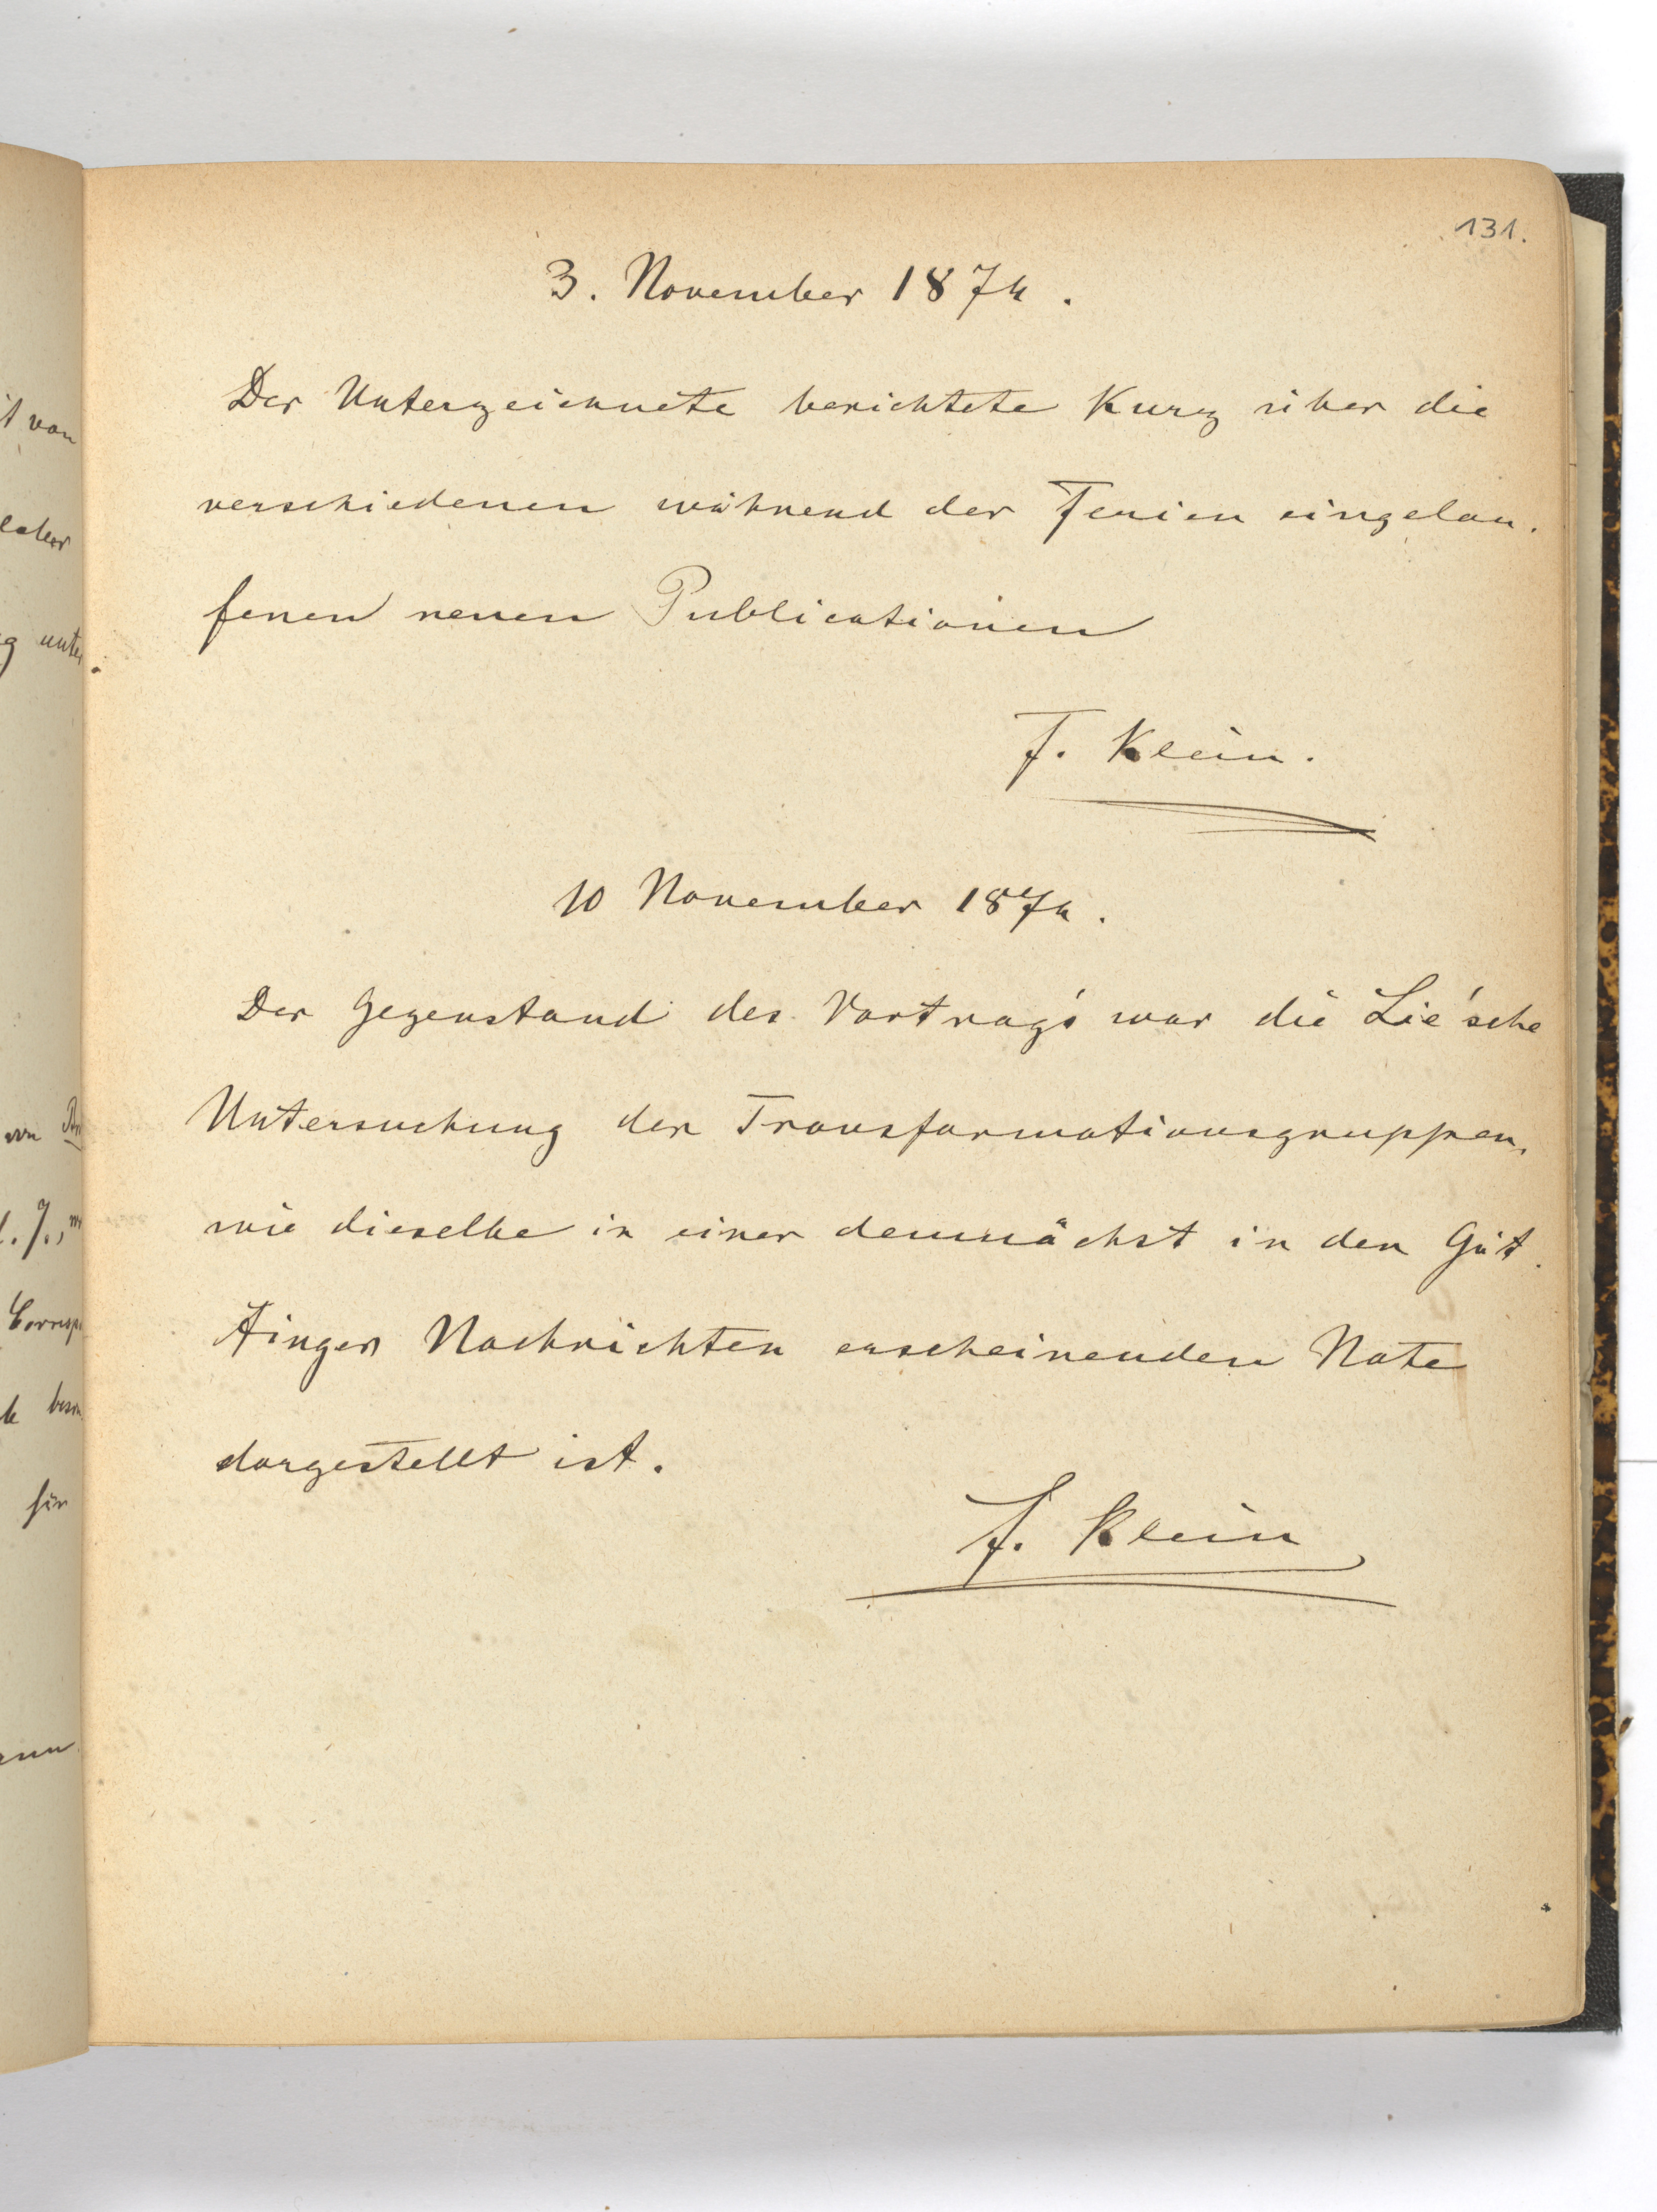 131.
3. November 1874.
Der Unterzeichnete berichtete kurz über die
verschiedenen während der Ferien eingelau-
fenen neuen Publicationen
F. Klein.
10 November 1874.
Der Gegenstand des Vortrags war die Lie'sche
Untersuchung der Transformationsgruppen,
wie dieselbe in einer demnächst in den Göt-
tinger Nachrichten erscheinenden Note
dargestellt ist.
F. Klein